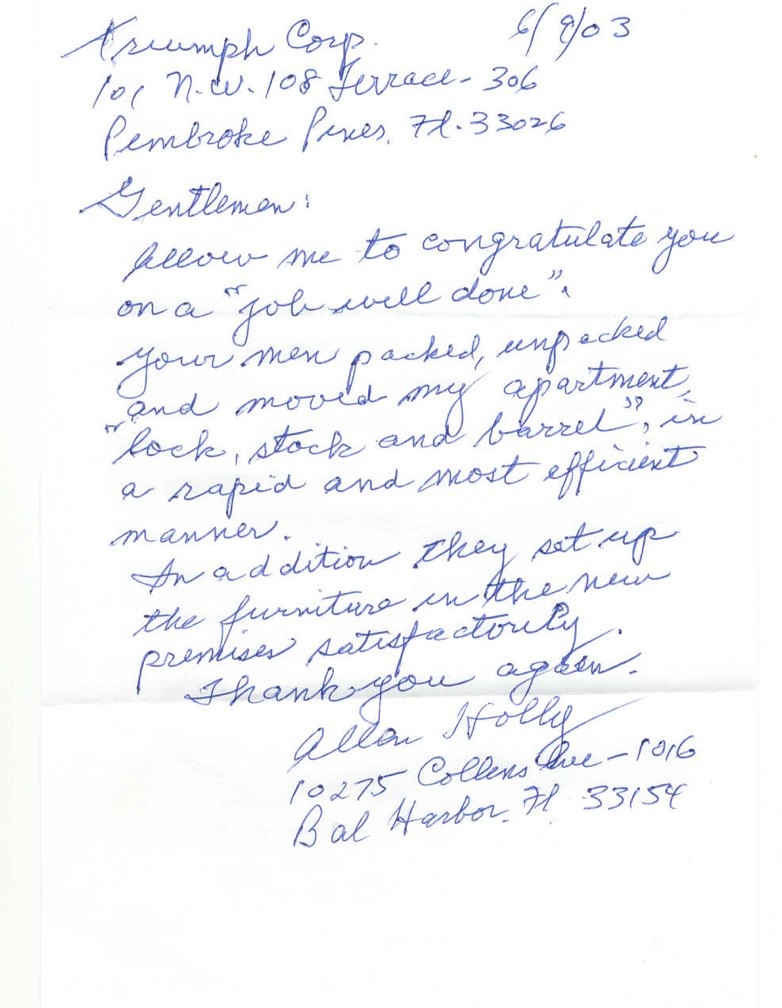 Triumph Corp. 6/9/03
101 N.W. 108 Terrace - 306
Pembroke Pines, Fl. 33026
Gentlemen:
Allow me to congratulate you
on a "job well done".
Your men packed, unpacked
and moved my apartment,
"lock, stock and barrel", in
a rapid and most efficient
manner.
In addition they set up
the furniture in the new
premises satisfactorily.
Thank you again.
Allan Holly
10275 Collins Ave - 1016
Bal Harbor, Fl 33154